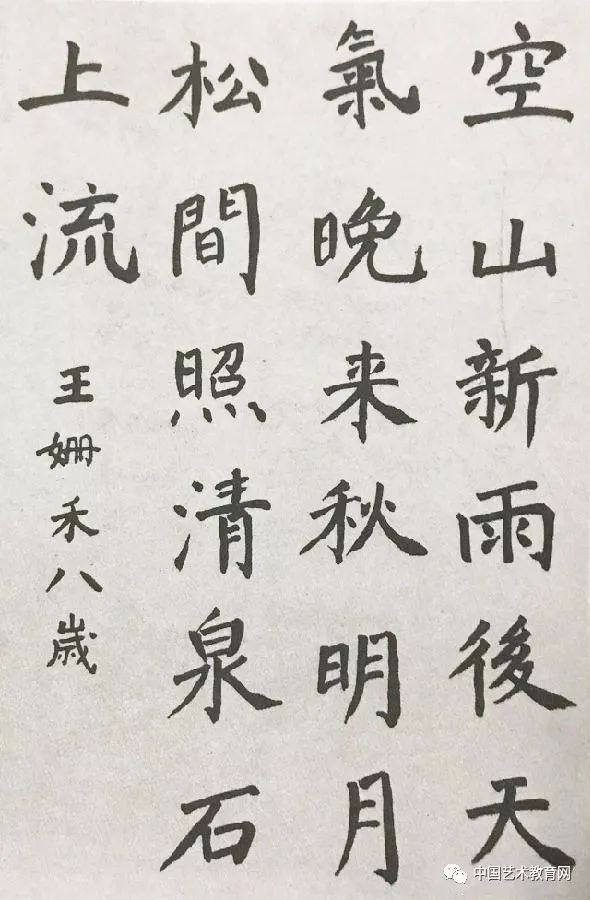 空山新雨後天
氣晚来秋明月
松間照清泉石
上流
王姗禾八歳
中国艺术教育网